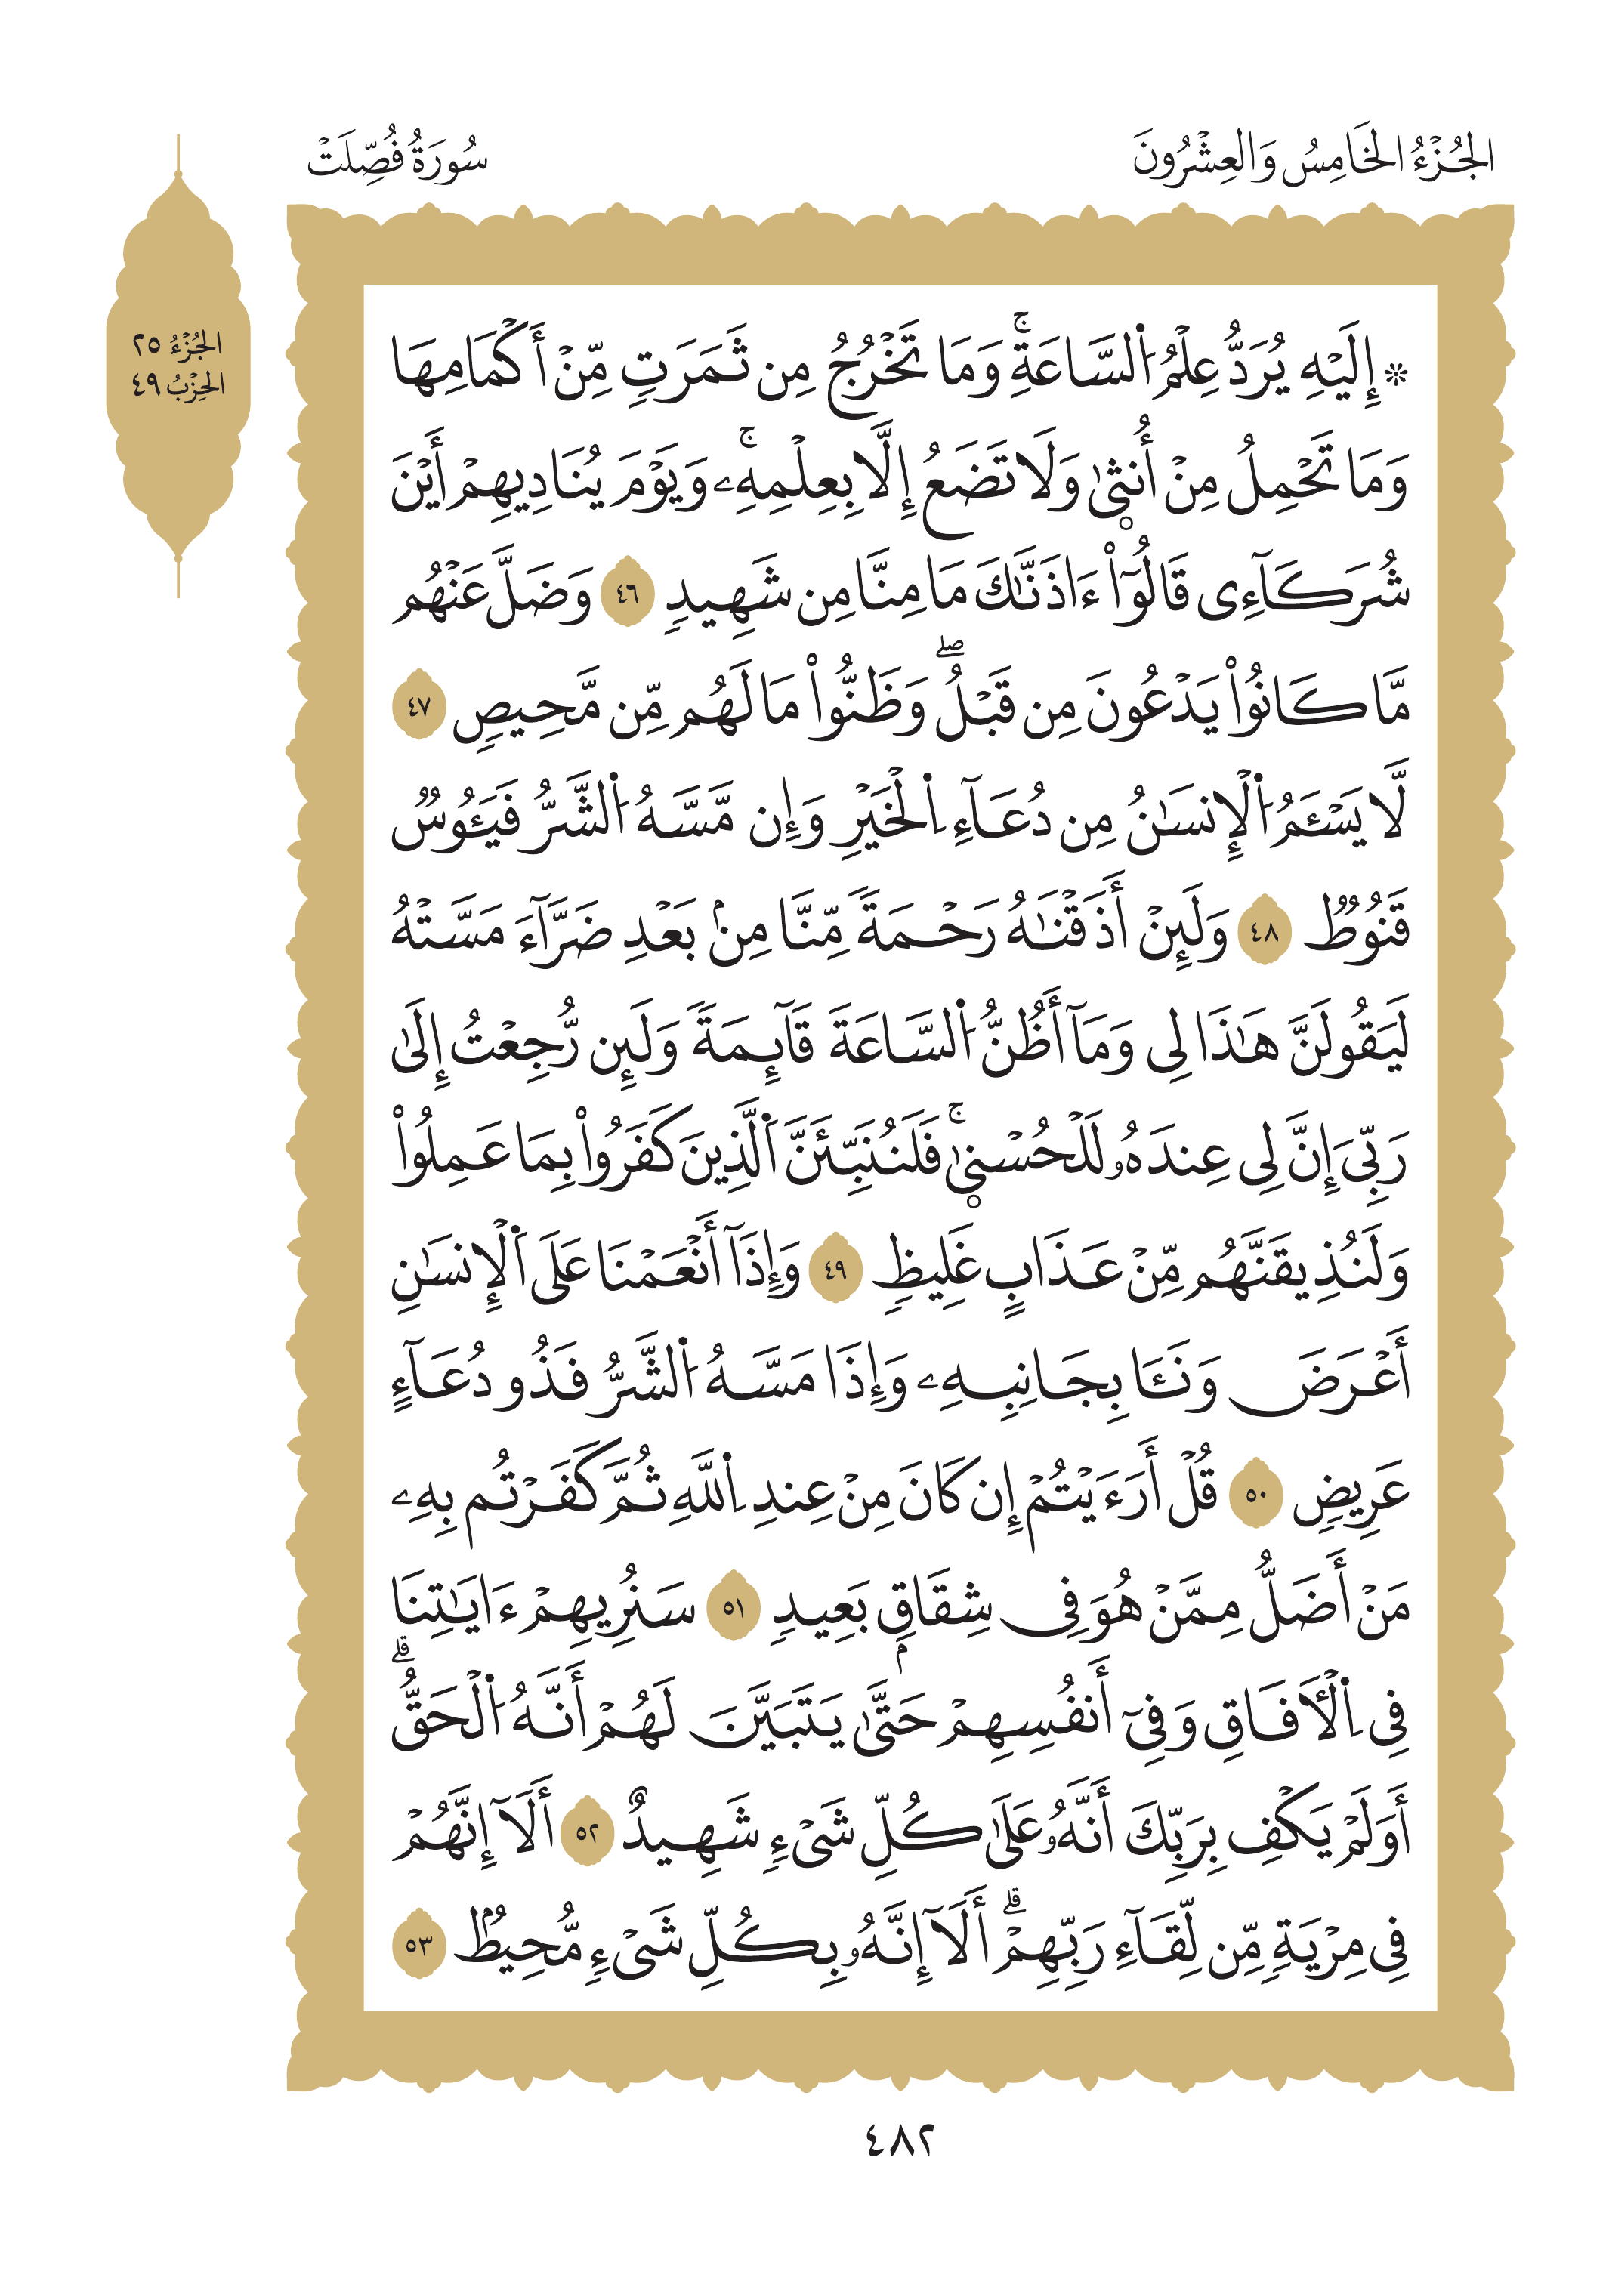 الجُزْءُ الخَامِسُ وَالعِشْرُونَ
سُورَةُ فُصِّلَتْ
الجُزْءُ ٢٥
الحِزْبُ ٤٩
۞ إِلَيْهِ يُرَدُّ عِلْمُ اُ۬لسَّاعَةِۚ وَمَا تَخْرُجُ مِن ثَمَرَتٖ مِّنْ أَكْمَامِهَا
وَمَا تَحْمِلُ مِنْ أُنثۭيٰ وَلَا تَضَعُ إِلَّا بِعِلْمِهِۦۚ وَيَوْمَ يُنَادِيهِمْ أَيْنَ
شُرَكَآءِي قَالُوٓاْ ءَاذَنَّٰكَ مَا مِنَّا مِن شَهِيدٖ ٤٦ وَضَلَّ عَنْهُم
مَّا كَانُواْ يَدْعُونَ مِن قَبْلُۖ وَظَنُّواْ مَا لَهُم مِّن مَّحِيصٖ ٤٧
لَّا يَسْـَٔمُ اُ۬لْإِنسَٰنُ مِن دُعَآءِ اِ۬لْخَيْرِ وَإِن مَّسَّهُ اُ۬لشَّرُّ فَيَـُٔوسٞ
قَنُوطٞ ٤٨ وَلَئِنْ أَذَقْنَٰهُ رَحْمَةٗ مِّنَّا مِنۢ بَعْدِ ضَرَّآءَ مَسَّتْهُ
لَيَقُولَنَّ هَٰذَا لِي وَمَآ أَظُنُّ اُ۬لسَّاعَةَ قَآئِمَةٗ وَلَئِن رُّجِعْتُ إِلَىٰ
رَبِّيَ إِنَّ لِي عِندَهُۥ لَلْحُسْنۭيٰۚ فَلَنُنَبِّئَنَّ اَ۬لَّذِينَ كَفَرُواْ بِمَا عَمِلُواْ
وَلَنُذِيقَنَّهُم مِّنْ عَذَابٍ غَلِيظٖ ٤٩ وَإِذَآ أَنْعَمْنَا عَلَى اَ۬لْإِنسَٰنِ
أَعْرَضَ وَنَـَٔا بِجَانِبِهِۦ وَإِذَا مَسَّهُ اُ۬لشَّرُّ فَذُو دُعَآءٍ
عَرِيضٖ ٥٠ قُلْ أَرَءَيْتُمْ إِن كَانَ مِنْ عِندِ اِ۬للَّهِ ثُمَّ كَفَرْتُم بِهِۦ
مَنْ أَضَلُّ مِمَّنْ هُوَ فِي شِقَاقِۢ بَعِيدٖ ٥١ سَنُرِيهِمْ ءَايَٰتِنَا
فِي اِ۬لْأٓفَاقِ وَفِيٓ أَنفُسِهِمْ حَتَّىٰ يَتَبَيَّنَ لَهُمْ أَنَّهُ اُ۬لْحَقُّۗ
أَوَلَمْ يَكْفِ بِرَبِّكَ أَنَّهُۥ عَلَىٰ كُلِّ شَيْءٖ شَهِيدٌ ٥٢ أَلَآ إِنَّهُمْ
فِي مِرْيَةٖ مِّن لِّقَآءِ رَبِّهِمْۗ أَلَآ إِنَّهُۥ بِكُلِّ شَيْءٖ مُّحِيطُۢ ٥٣
٤٨٢